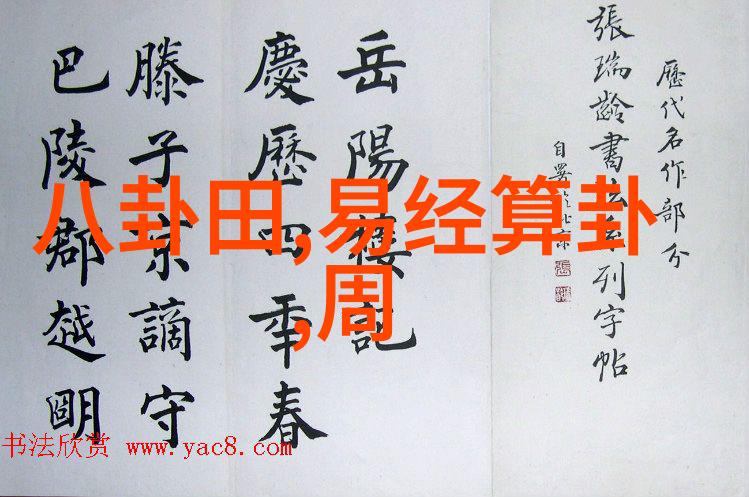 歷代名作部分
張瑞齡書法系列字帖
自署於北京
岳陽樓記
慶歷四年春
滕子京謫守
巴陵郡越朙
八卦田,易经算卦
,周
书法欣赏 www.yac8.com